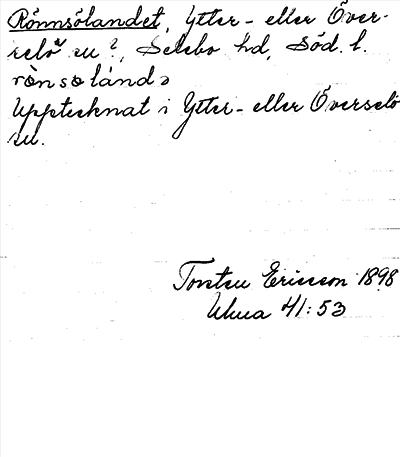 Rönnsölandet, Ytter- eller Över-
selö sn?, Selebo hd, Söd. l.
rönsoland
Upptecknat i Ytter- eller Överselö
sn.
Torsten Ericsson 1898
Uhua 41:53